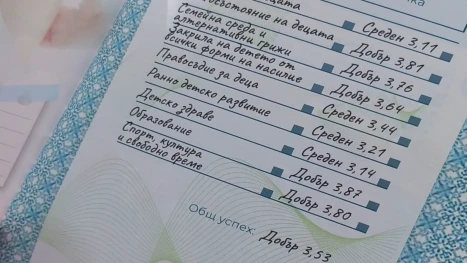 на децата Среден 3,11
Семейна среда и
алтернативни грижи Добър 3,81
Закрила на детето от
всички форми на насилие Добър 3,76
Правосъдие за деца Добър 3,64
Ранно детско развитие Среден 3,44
Детско здраве Среден 3,21
Образование Среден 3,14
Спорт, култура
и свободно време Добър 3,87
Добър 3,80
Общ успех: Добър 3,53